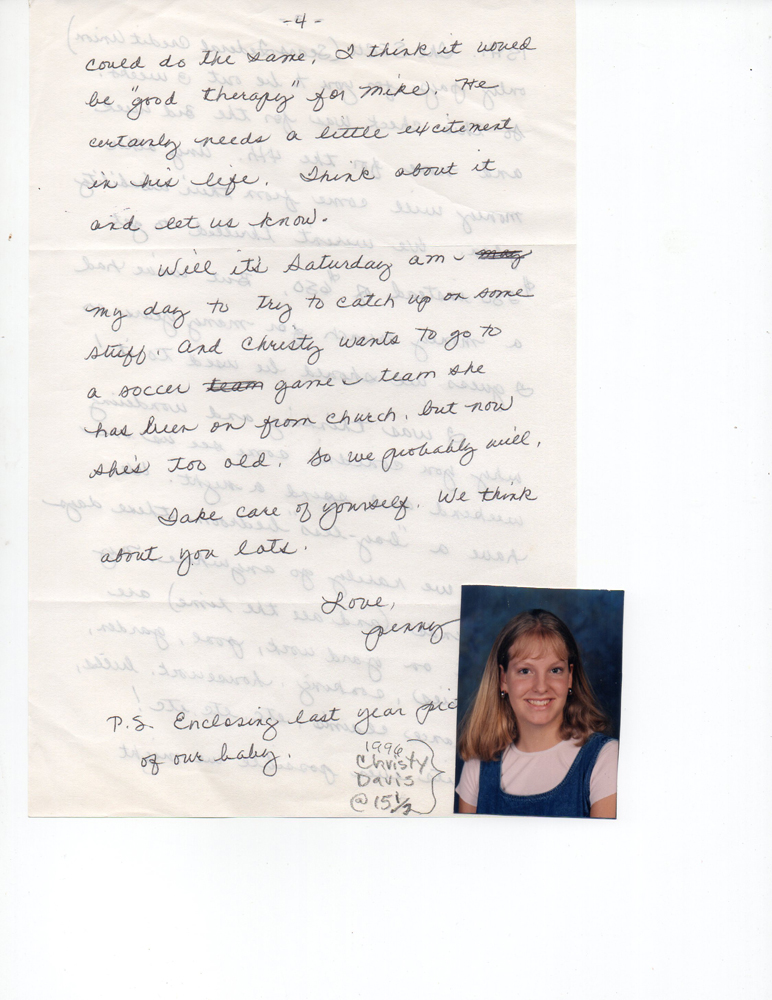 -4-
could do the same. I think it would
be "good therapy" for Mike. He
certainly needs a little excitement
in his life. Think about it
and let us know.
Well it's Saturday am - may
my day to try to catch up on some
stuff. And Christy wants to go to
a soccer team game - team she
has been on from church, but now
she's too old. So we probably will.
Take care of yourself. We think
about you lots.
Love,
Penny
P.S. Enclosing last year pic
of our baby.
1996
Christy
Davis
@ 15 1/2